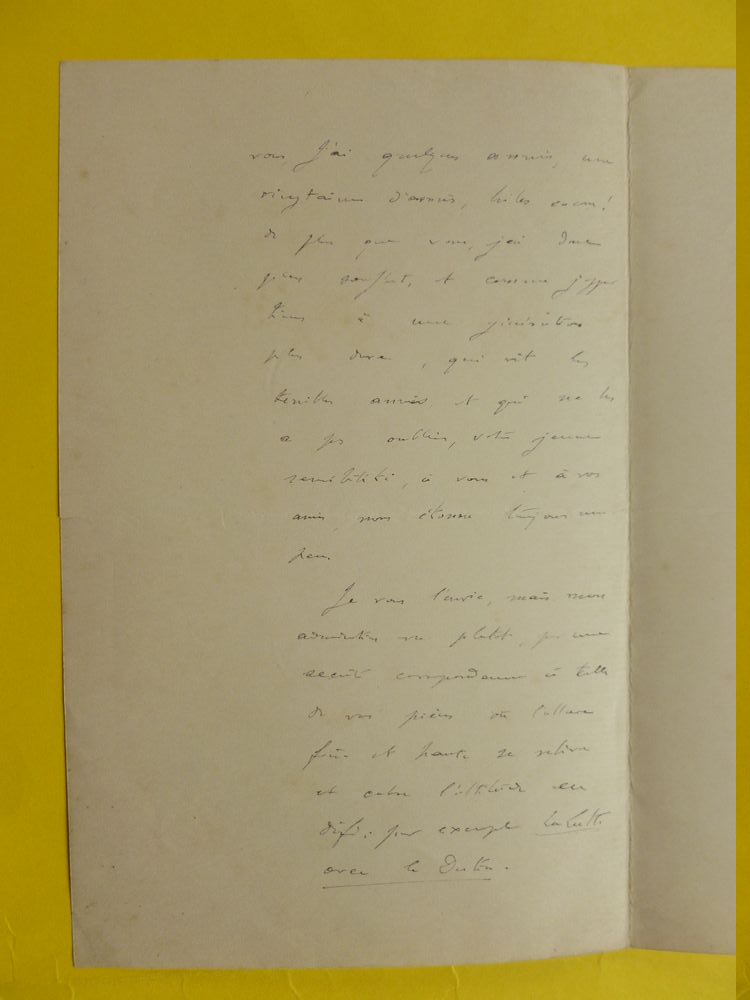 vous, j'ai quelques années, une
vingtaine d'années, hélas encore!
de plus que vous, j'ai donc
plus souffert, et comme j'appar
tiens à une génération
plus dure, qui vit les
terribles années et qui ne les
a pas oubliées, votre jeune
sensibilité, à vous et à vos
amis, nous étonne toujours un
peu.
Je vous l'envie, mais mon
admiration va plutôt, par une
secrète correspondance à telle
de vos pièces où l'allure
fière et haute se relève
et outre l'attitude en
défi: par exemple La Lutte
avec le